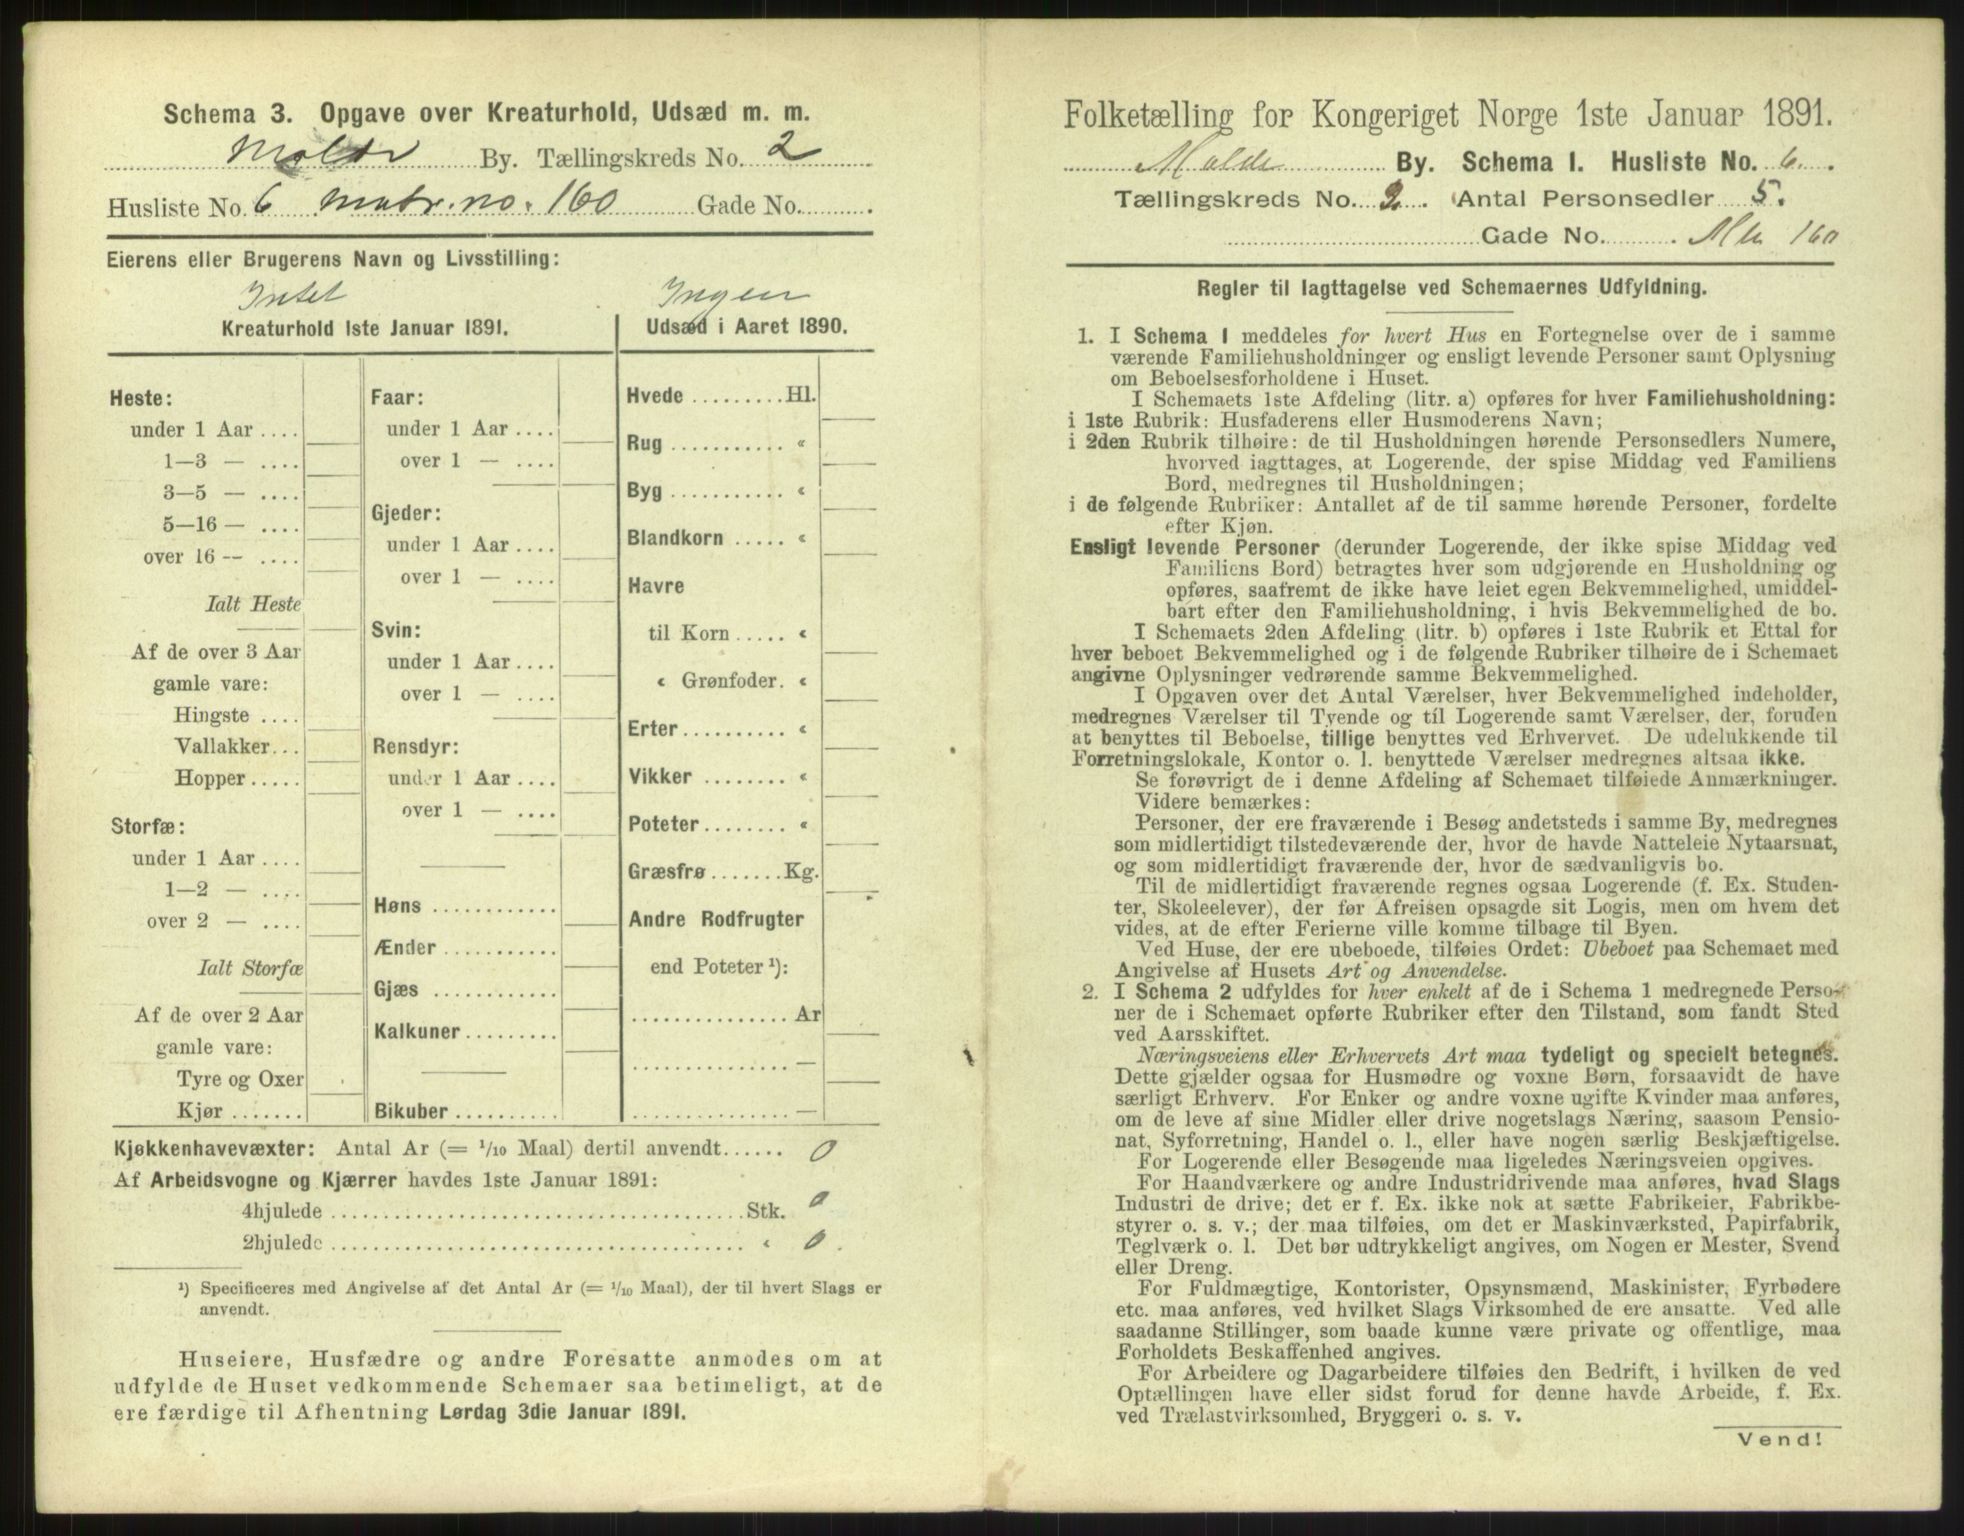 Schema 3. Opgave over Kreaturhold, Udsæd m. m.
Molde By. Tællingskreds No. 2
Husliste No. 6 matr. no. 160 Gade No.
Eierens eller Brugerens Navn og Livsstilling:
Intet
Kreaturhold 1ste Januar 1891.
Heste:
under 1 Aar ....
1—3 — ....
3—5 — ....
5—16 — ....
over 16 — ....
Ialt Heste
Af de over 3 Aar
gamle vare:
Hingste ....
Vallakker...
Hopper.....
Storfæ:
under 1 Aar ....
1—2 — ....
over 2 — ....
Ialt Storfæ
Af de over 2 Aar
gamle vare:
Tyre og Oxer
Kjør .......
Faar:
under 1 Aar ....
over 1 — ....
Gjeder:
under 1 Aar ....
over 1 — ....
Svin:
under 1 Aar ....
over 1 — ....
Rensdyr:
under 1 Aar ....
over 1 — ....
Høns ............
Ænder ...........
Gjæs ............
Kalkuner.........
Bikuber..........
Ingen
Udsæd i Aaret 1890.
Hvede .........Hl.
Rug ........... «
Byg ........... «
Blandkorn ..... «
Havre
til Korn ..... «
« Grønfoder. «
Erter.......... «
Vikker ........ «
Poteter........ «
Græsfrø.......Kg.
Andre Rodfrugter
end Poteter ¹):
............... Ar
............... —
............... —
Kjøkkenhavevæxter: Antal Ar (= 1/10 Maal) dertil anvendt...... 0
Af Arbeidsvogne og Kjærrer havdes 1ste Januar 1891:
4hjulede .......................................Stk. 0
2hjulede ....................................... « 0.
¹) Specificeres med Angivelse af det Antal Ar (= 1/10 Maal), der til hvert Slags er
anvendt.
Huseiere, Husfædre og andre Foresatte anmodes om at
udfylde de Huset vedkommende Schemaer saa betimeligt, at de
ere færdige til Afhentning Lørdag 3die Januar 1891.
Folketælling for Kongeriget Norge 1ste Januar 1891.
Molde By. Schema I. Husliste No. 6.
Tællingskreds No. 2. Antal Personsedler 5.
Gade No. . 160
Regler til Iagttagelse ved Schemaernes Udfyldning.
1. I Schema 1 meddeles for hvert Hus en Fortegnelse over de i samme
værende Familiehusholdninger og ensligt levende Personer samt Oplysning
om Beboelsesforholdene i Huset.
I Schemaets 1ste Afdeling (litr. a) opføres for hver Familiehusholdning:
i 1ste Rubrik: Husfaderens eller Husmoderens Navn;
i 2den Rubrik tilhøire: de til Husholdningen hørende Personsedlers Numere,
hvorved iagttages, at Logerende, der spise Middag ved Familiens
Bord, medregnes til Husholdningen;
i de følgende Rubriker: Antallet af de til samme hørende Personer, fordelte
efter Kjøn.
Ensligt levende Personer (derunder Logerende, der ikke spise Middag ved
Familiens Bord) betragtes hver som udgjørende en Husholdning og
opføres, saafremt de ikke have leiet egen Bekvemmelighed, umiddel-
bart efter den Familiehusholdning, i hvis Bekvemmelighed de bo.
I Schemaets 2den Afdeling (litr. b) opføres i 1ste Rubrik et Ettal for
hver beboet Bekvemmelighed og i de følgende Rubriker tilhøire de i Schemaet
angivne Oplysninger vedrørende samme Bekvemmelighed.
I Opgaven over det Antal Værelser, hver Bekvemmelighed indeholder,
medregnes Værelser til Tyende og til Logerende samt Værelser, der, foruden
at benyttes til Beboelse, tillige benyttes ved Erhvervet. De udelukkende til
Forretningslokale, Kontor o. l. benyttede Værelser medregnes altsaa ikke.
Se forøvrigt de i denne Afdeling af Schemaet tilføiede Anmærkninger.
Videre bemærkes:
Personer, der ere fraværende i Besøg andetsteds i samme By, medregnes
som midlertidigt tilstedeværende der, hvor de havde Natteleie Nytaarsnat,
og som midlertidigt fraværende der, hvor de sædvanligvis bo.
Til de midlertidigt fraværende regnes ogsaa Logerende (f. Ex. Studen-
ter, Skoleelever), der før Afreisen opsagde sit Logis, men om hvem det
vides, at de efter Ferierne ville komme tilbage til Byen.
Ved Huse, der ere ubeboede, tilføies Ordet: Ubeboet paa Schemaet med
Angivelse af Husets Art og Anvendelse.
2. I Schema 2 udfyldes for hver enkelt af de i Schema 1 medregnede Perso-
ner de i Schemaet opførte Rubriker efter den Tilstand, som fandt Sted
ved Aarsskiftet.
Næringsveiens eller Erhvervets Art maa tydeligt og specielt betegnes.
Dette gjælder ogsaa for Husmødre og voxne Børn, forsaavidt de have
særligt Erhverv. For Enker og andre voxne ugifte Kvinder maa anføres,
om de leve af sine Midler eller drive nogetslags Næring, saasom Pensio-
nat, Syforretning, Handel o. l., eller have nogen særlig Beskjæftigelse.
For Logerende eller Besøgende maa ligeledes Næringsveien opgives.
For Haandværkere og andre Industridrivende maa anføres, hvad Slags
Industri de drive; det er f. Ex. ikke nok at sætte Fabrikeier, Fabrikbe-
styrer o. s. v.; der maa tilføies, om det er Maskinværksted, Papirfabrik,
Teglværk o. l. Det bør udtrykkeligt angives, om Nogen er Mester, Svend
eller Dreng.
For Fuldmægtige, Kontorister, Opsynsmænd, Maskinister, Fyrbødere
etc. maa anføres, ved hvilket Slags Virksomhed de ere ansatte. Ved alle
saadanne Stillinger, som baade kunne være private og offentlige, maa
Forholdets Beskaffenhed angives.
For Arbeidere og Dagarbeidere tilføies den Bedrift, i hvilken de ved
Optællingen have eller sidst forud for denne havde Arbeide, f. Ex.
ved Trælastvirksomhed, Bryggeri o. s. v.
Vend!